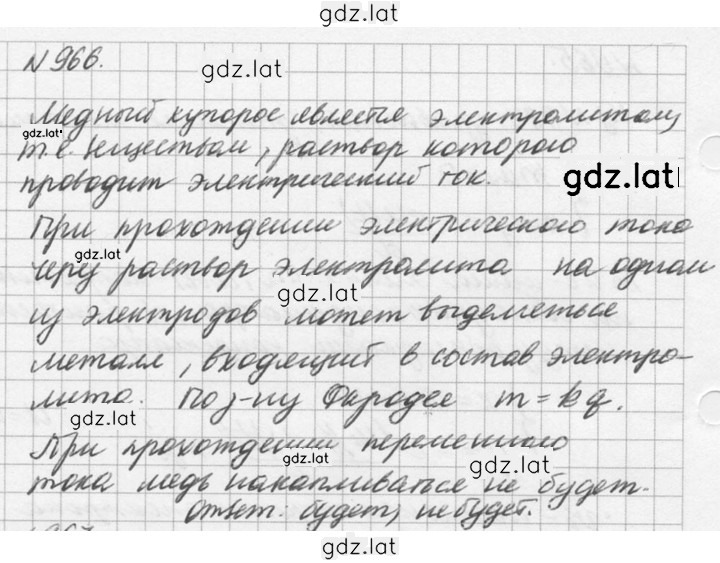 gdz.lat
N 966.
gdz.lat
Медный купорос является электролитом,
gdz.lat
т.е. веществом, раствор которого
проводит электрический ток.
gdz.lat
При прохождении электрического тока
gdz.lat
через раствор электролита на одном
gdz.lat
из электродов может выделяться
металл, входящий в состав электро-
лита. По з-ну Фарадея m = kq.
gdz.lat
При прохождении переменного
gdz.lat
gdz.lat
тока медь накапливаться не будет.
Ответ: будет, не будет.
gdz.lat